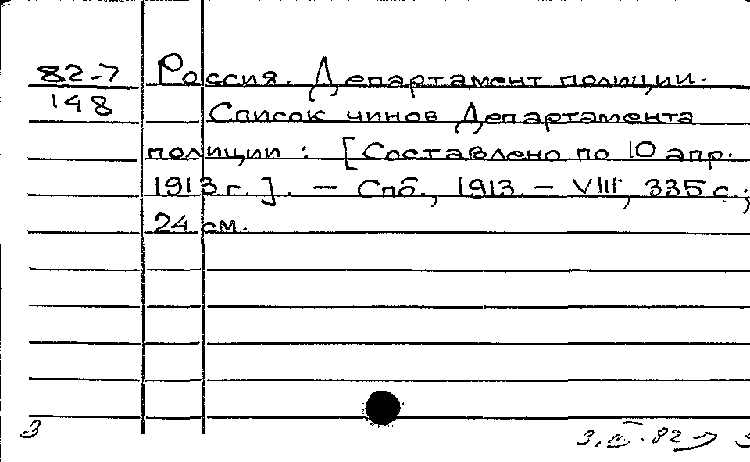 82-7 Россия. Департамент полиции.
148 Список чинов Департамента
полиции : [Составлено по 10 апр.
1913 г.]. — Спб., 1913. — VIII, 335 с.;
24 см.
3